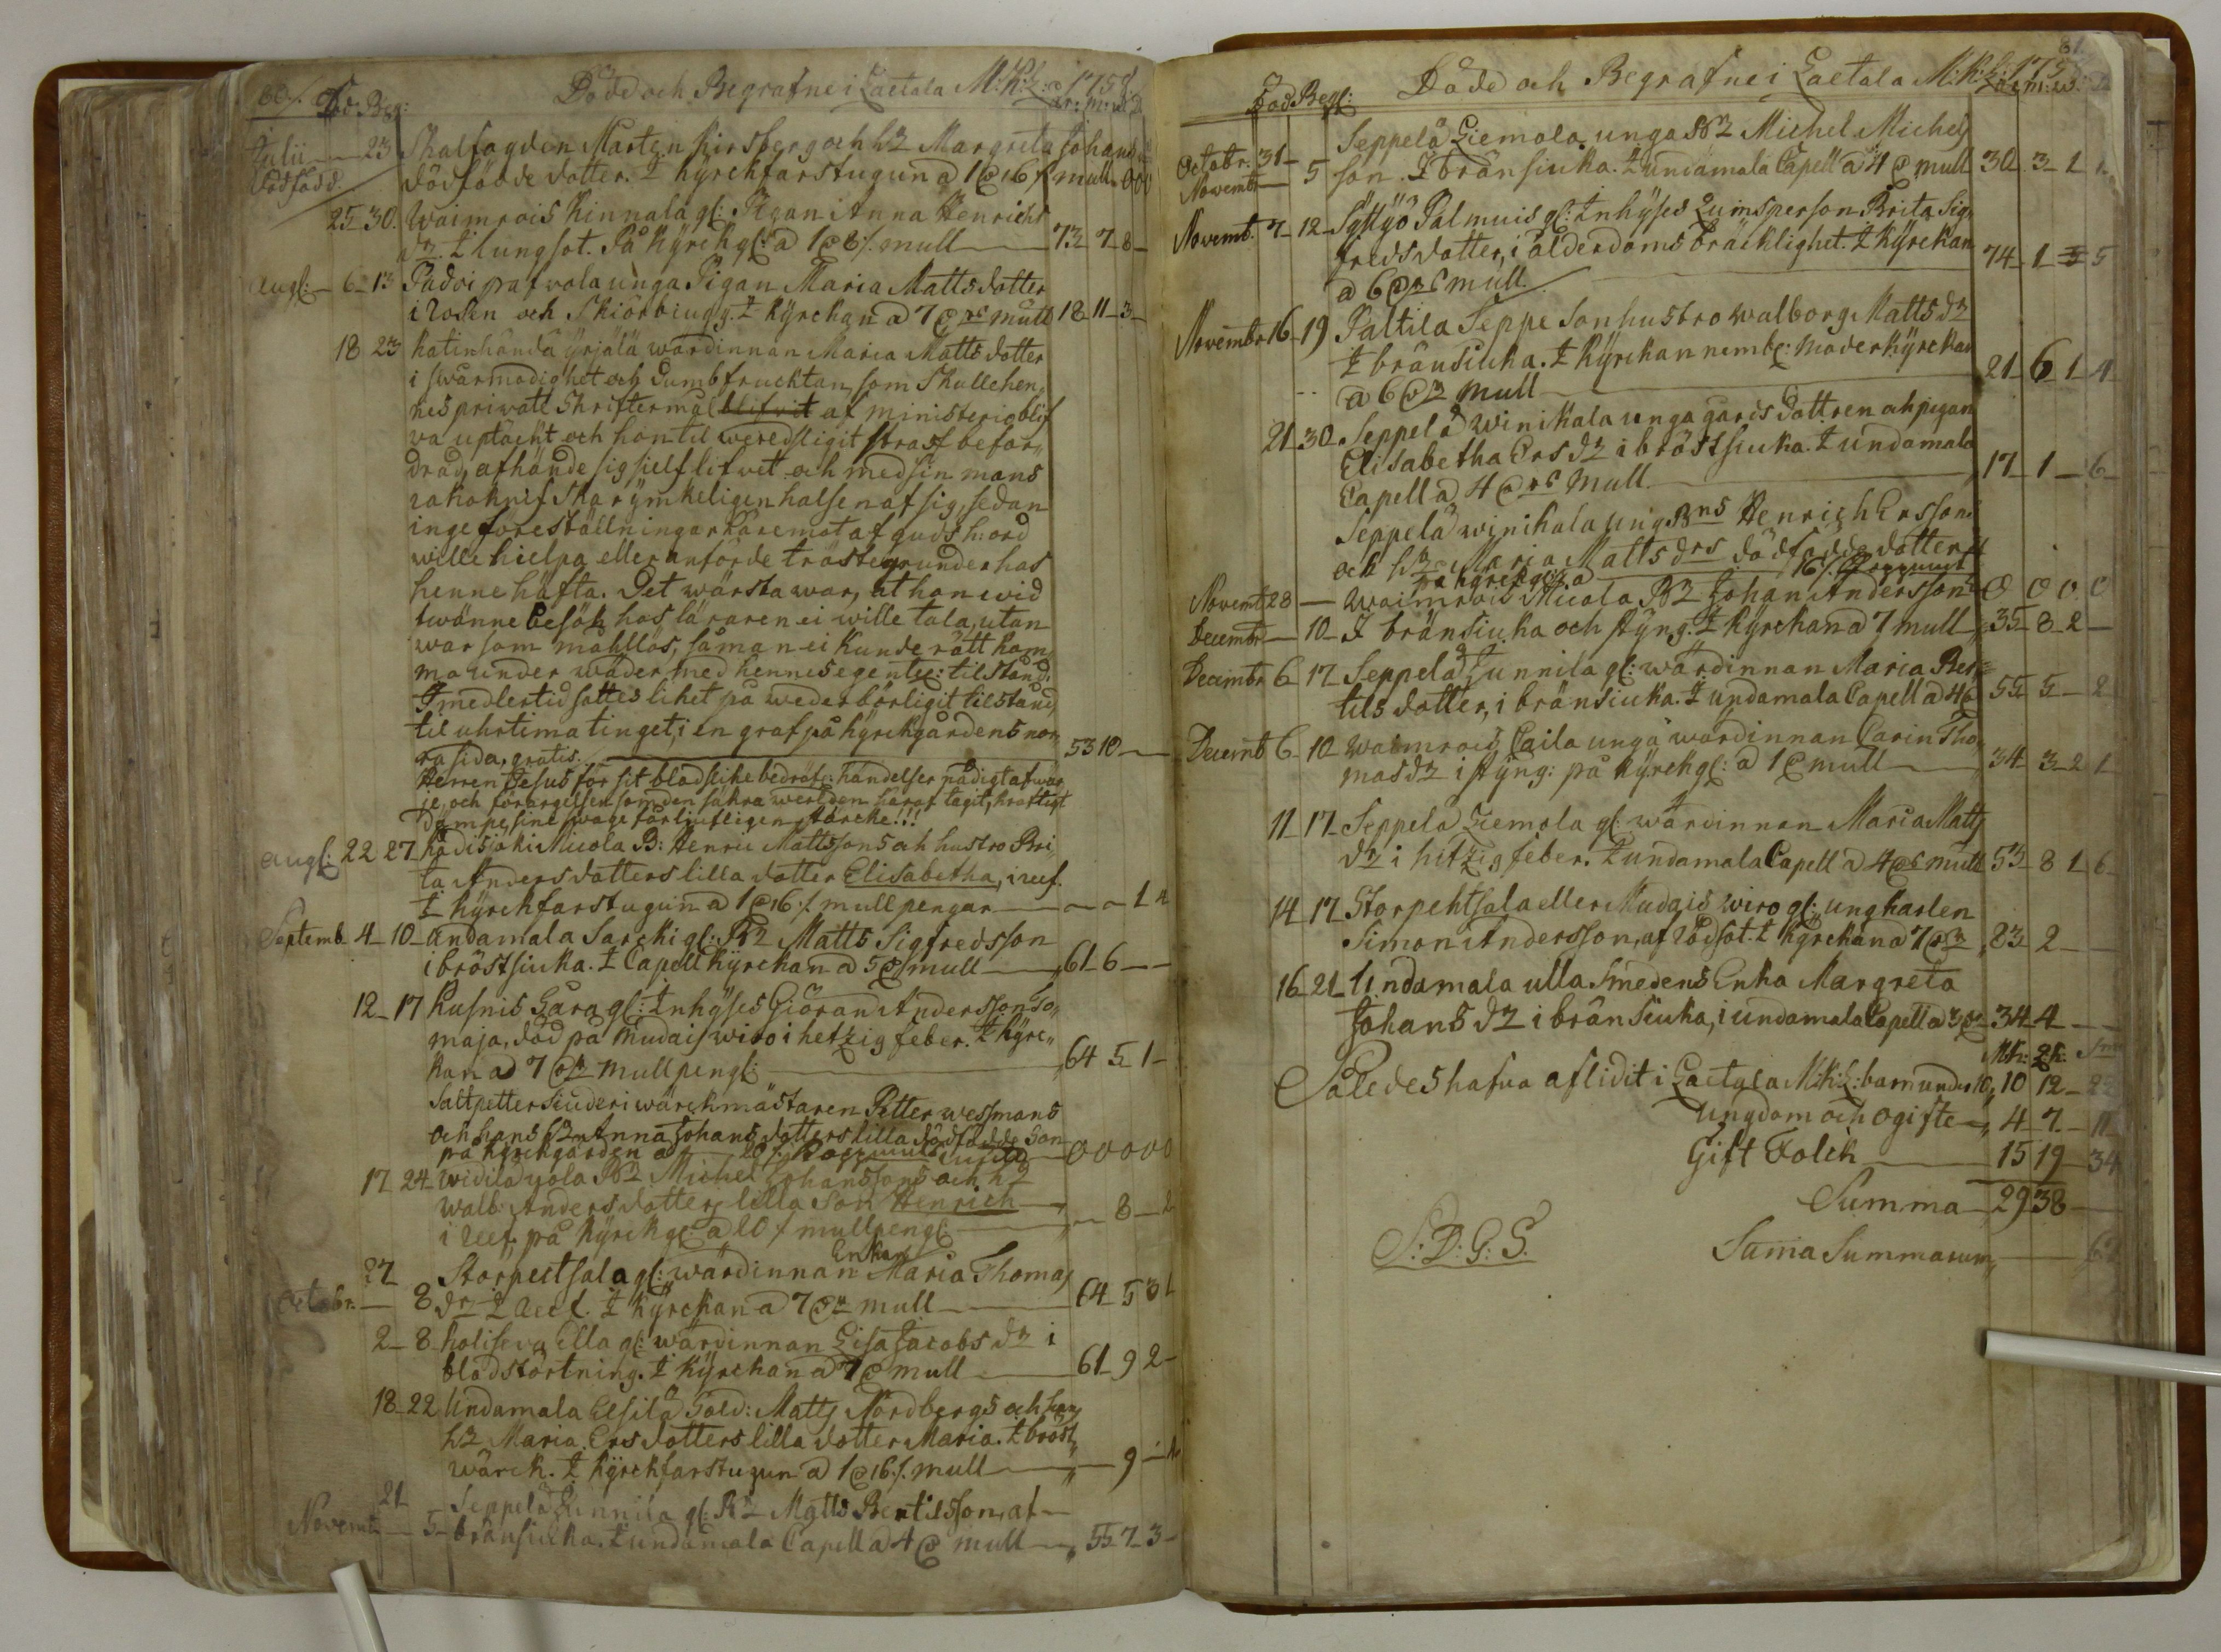 80.
Död. Beg: Döde och Begrafne i Laetala M:K:L: a:o 1758.
år: m: w: D
Julii — 23 Skalfogden Mårten Kirsberg och h:r Margreta Johans
Dödfödd. dödfödde dotter. I kyrckfarstugun a 1 @ 16 /. mull — 000
25 30. Waimrois Kinnala gl: Pigan Anna Henrichs
dr. I lungsot. På kyrckg: a 1 @ 8 /. mull — 73 7 8 —
Aug: — 6 13 Padoi pafvola unga Pigan Maria Matts dotter
i Rosen och Skiörbiugg. I kyrckan a 7 @ mull 18 11 3 —
18 23 Katinhända yrjälä wärdinnan Maria Matts dotter
i swårmodighet och dumb frucktan, som skulle hen,
nes privatt skriftermål blifvit af ministerio blif
va uptäckt och hon til werdsligit straff befor,,
drad, afhände sig sielf lifvet och med sin mans
rakoknif skar ymkeligen halsen af sig, sedan
inge föreställningar häremot af guds h: ord
wille hielpa eller anförde tröstegrunder hos
henne häfta. Det wärsta war, at hon wid
twänne besök hos läraren ei wille tala, utan
war som mållös, så man ei kunde rätt kom,
ma under wäder med hennes egentel: tilstånd.
Imedlertid sattes liket på wederbörligit tilstånd,
til uhrtima tinget, i en graf på kyrckgårdens nor,
ra sida, gratis. — 53 10 —
Herren Jesus för sit blod slike bedröfl: händelser nådigt afwär
je, och förargelsen som den säkra werlden häraf tagit, kraftigt
dämpe, sine swage förljufligen stärcke!!!
Aug: 22 27 Kådisjoki Nicola B: Henric Mattssons och hustro Bri
ta Anders dotters lilla dotter Elisabetha, i reef.
I kyrckfarstugun a 1 @ 16 /. mullpengar — — — 1 4
Septemb. 4 — 10 — Undamala Sarcki gl: B:r Matts Sigfredsson
i bröstsiuka. I Capell kyrckan a 5 @ mull — 61 6 — —
12 — 17 Kusnis Gåra gl: Inhyses Giöran Andersson So,
maja, död på Mudais wiro i hetzig feber. I kyrc,,
kan a 7 @ mullpeng: — 64 5 1 —
Saltpetter Siuderi wärckmästaren Petter Wessmans
och hans h:r Anna Johans dotters lilla dödfödde Son
på kyrckgården a — 00000
17 24 — Widilä yola B:r Michel Johanssons och h:r
Walb: Anders dotters lilla Son Henrich —
i reef. på kyrckg: a 10 /. mullpeng: — — 8 — 2
Enkan
27 Storpectsala gl: wärdinnan Maria Thomas
Octobr. — 8 dr I kyrckan a 7 @ mull — 64 5 3 1
2 — 8 Koliseva Ella gl: wärdinnan Lisa Jacobs dr i
blodstörtning. I kyrckan a 7 @ mull — 61 9 2 —
18 — 22 Undamala Elsilä Sold: Matts Nordbergs och hans
h:r Maria Ers dotters lilla dotter Maria. I bröst,
wärck. I kyrckfarstugun a 1 @ 16 /. mull — — 9 —
21 Seppelä Lunnila gl: B:r Matts Bertilsson, af —
Novemb: — 5 — bränsiucka. I undamala Capell a 4 @ mull — 55 7 3 —
81.
Död Begr: Döde och Begrafne i Laetala M:K:L: 175
år: m: w:
Seppelä Liemola unga B:r Michel Michels
Octobr. 31 —
Novemb: — 5 son. I bränsiuka. I undamala Capell a 4 @ mull 30 3 — 1 1
Novemb: 7 — 12 — Sytlyö Palmuis gl: Inhyses Quinsperson Brita Sig,
fredsdotter, i ålderdoms bräcklighet. I kyrckan
a 6 @ mull. — 74 — 1 — 5
Novembr 16 — 19 Paltila Seppe Sonhustro Walborg Matts dr
I bränsiuka. I kyrckan nembl: Moderkyrckan
a 6 @ mull — 21 6 1 4
21 30 Seppelä Winikala unga gårds dottren och pigan
Elisabetha Ers dr i bröstsiuka. I undamala
Capell a 4 @ mull. — 17 — 1 — 6
Seppelä Winikala ung B:ns Henrich Ersson
och h:r Maria Matts drs dödfödde dotter
på kyrckg: a — 16 /.
Novemb 28 — Waimrois Nicola B:r Johan Andersson 0 0 0 0
Decembr — 10 — I bränsiuka och styng. I kyrckan a 7 mull — 35 — 8 — 2 —
Decembr 6 — 17 — Seppelä Lunnila gl: wärdinnan Maria Ber,,
tils dotter, i bränsiuka. I undamala Capell a 4 @ 55 5 — 2
Decemb 6 — 10 Waimrois Caila unga wärdinnan Carin Tho,
mas dr i styng: på kyrckg: a 1 @ mull — 34 — 3 — 2 1
11 — 17 — Seppelä Liemola gl: wärdinnan Maria Matts
dr i hitzig feber. I undamala Capell a 4 @ mull 53 — 8 1 6 —
14 — 17 Storpehtsala eller Mudais wiro gl: ungkarlen
Simon Andersson, af rödsot. I kyrckan a 7 @ 83 2 —
16 — 21 — Undamala ulla Smedens Enka Margreta
Johans dr i bränsiuka, i undamala Capell a 3 @ — 34 4 — —
Mk: Qk: Sm
Således hafva aflidit i Laetala M:K:L: barn under 10, 10 12 — 22
Ungdom och ogifte — 4 7 — 11
Gift Folck — 15 19 — 34
Summa — 29 38 —
S: D: G: S. Suma Summarum —